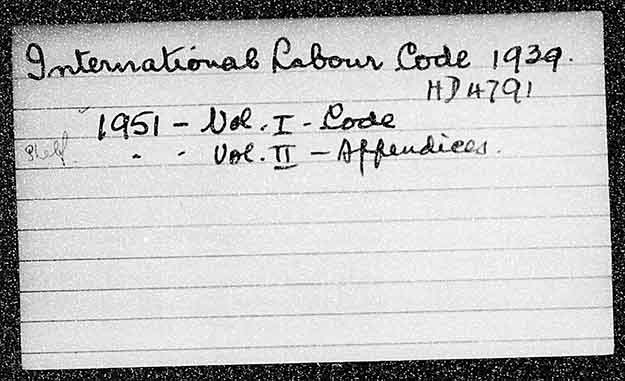 International Labour Code 1939.
HD 4791
1951 - Vol. I - Code
Shelf. " " Vol. II - Appendices.